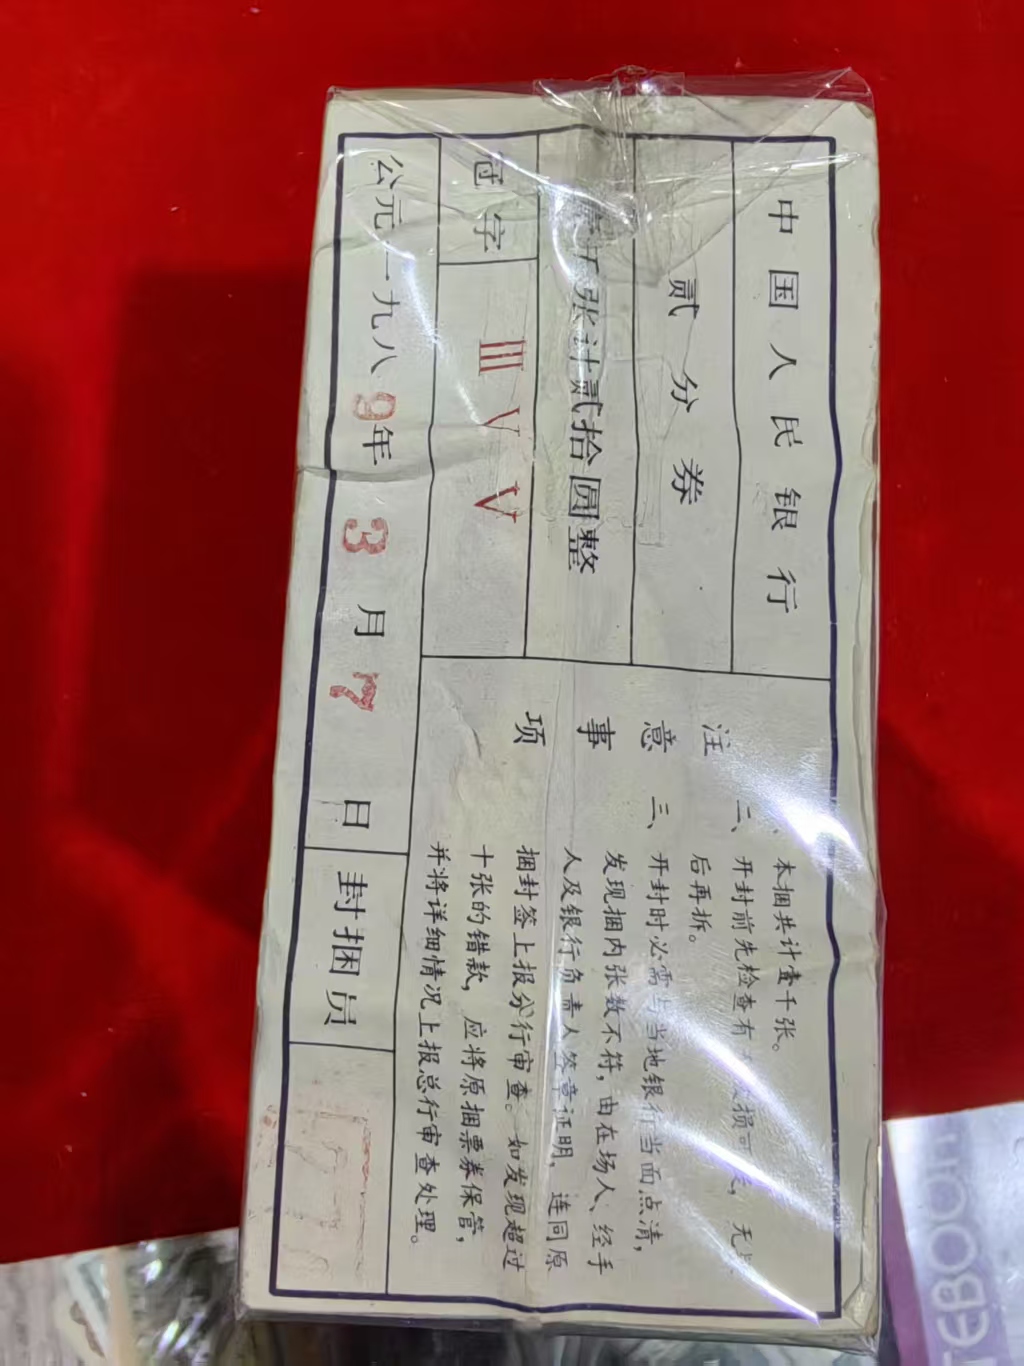 中国人民银行
贰分券
壹千张计贰拾圆整
冠字 III V V
公元一九八9年3月7日 封捆员
注意事项
一、本捆共计壹千张。
二、开封前先检查有 破损可疑,无
后再拆。
三、开封时必需与当地银行当面点清,
发现捆内张数不符,由在场人、经手
人及银行负责人签章证明,连同原
捆封签上报分行审查。如发现超过
十张的错款,应将原捆票券保管,
并将详细情况上报总行审查处理。
TEBOOK